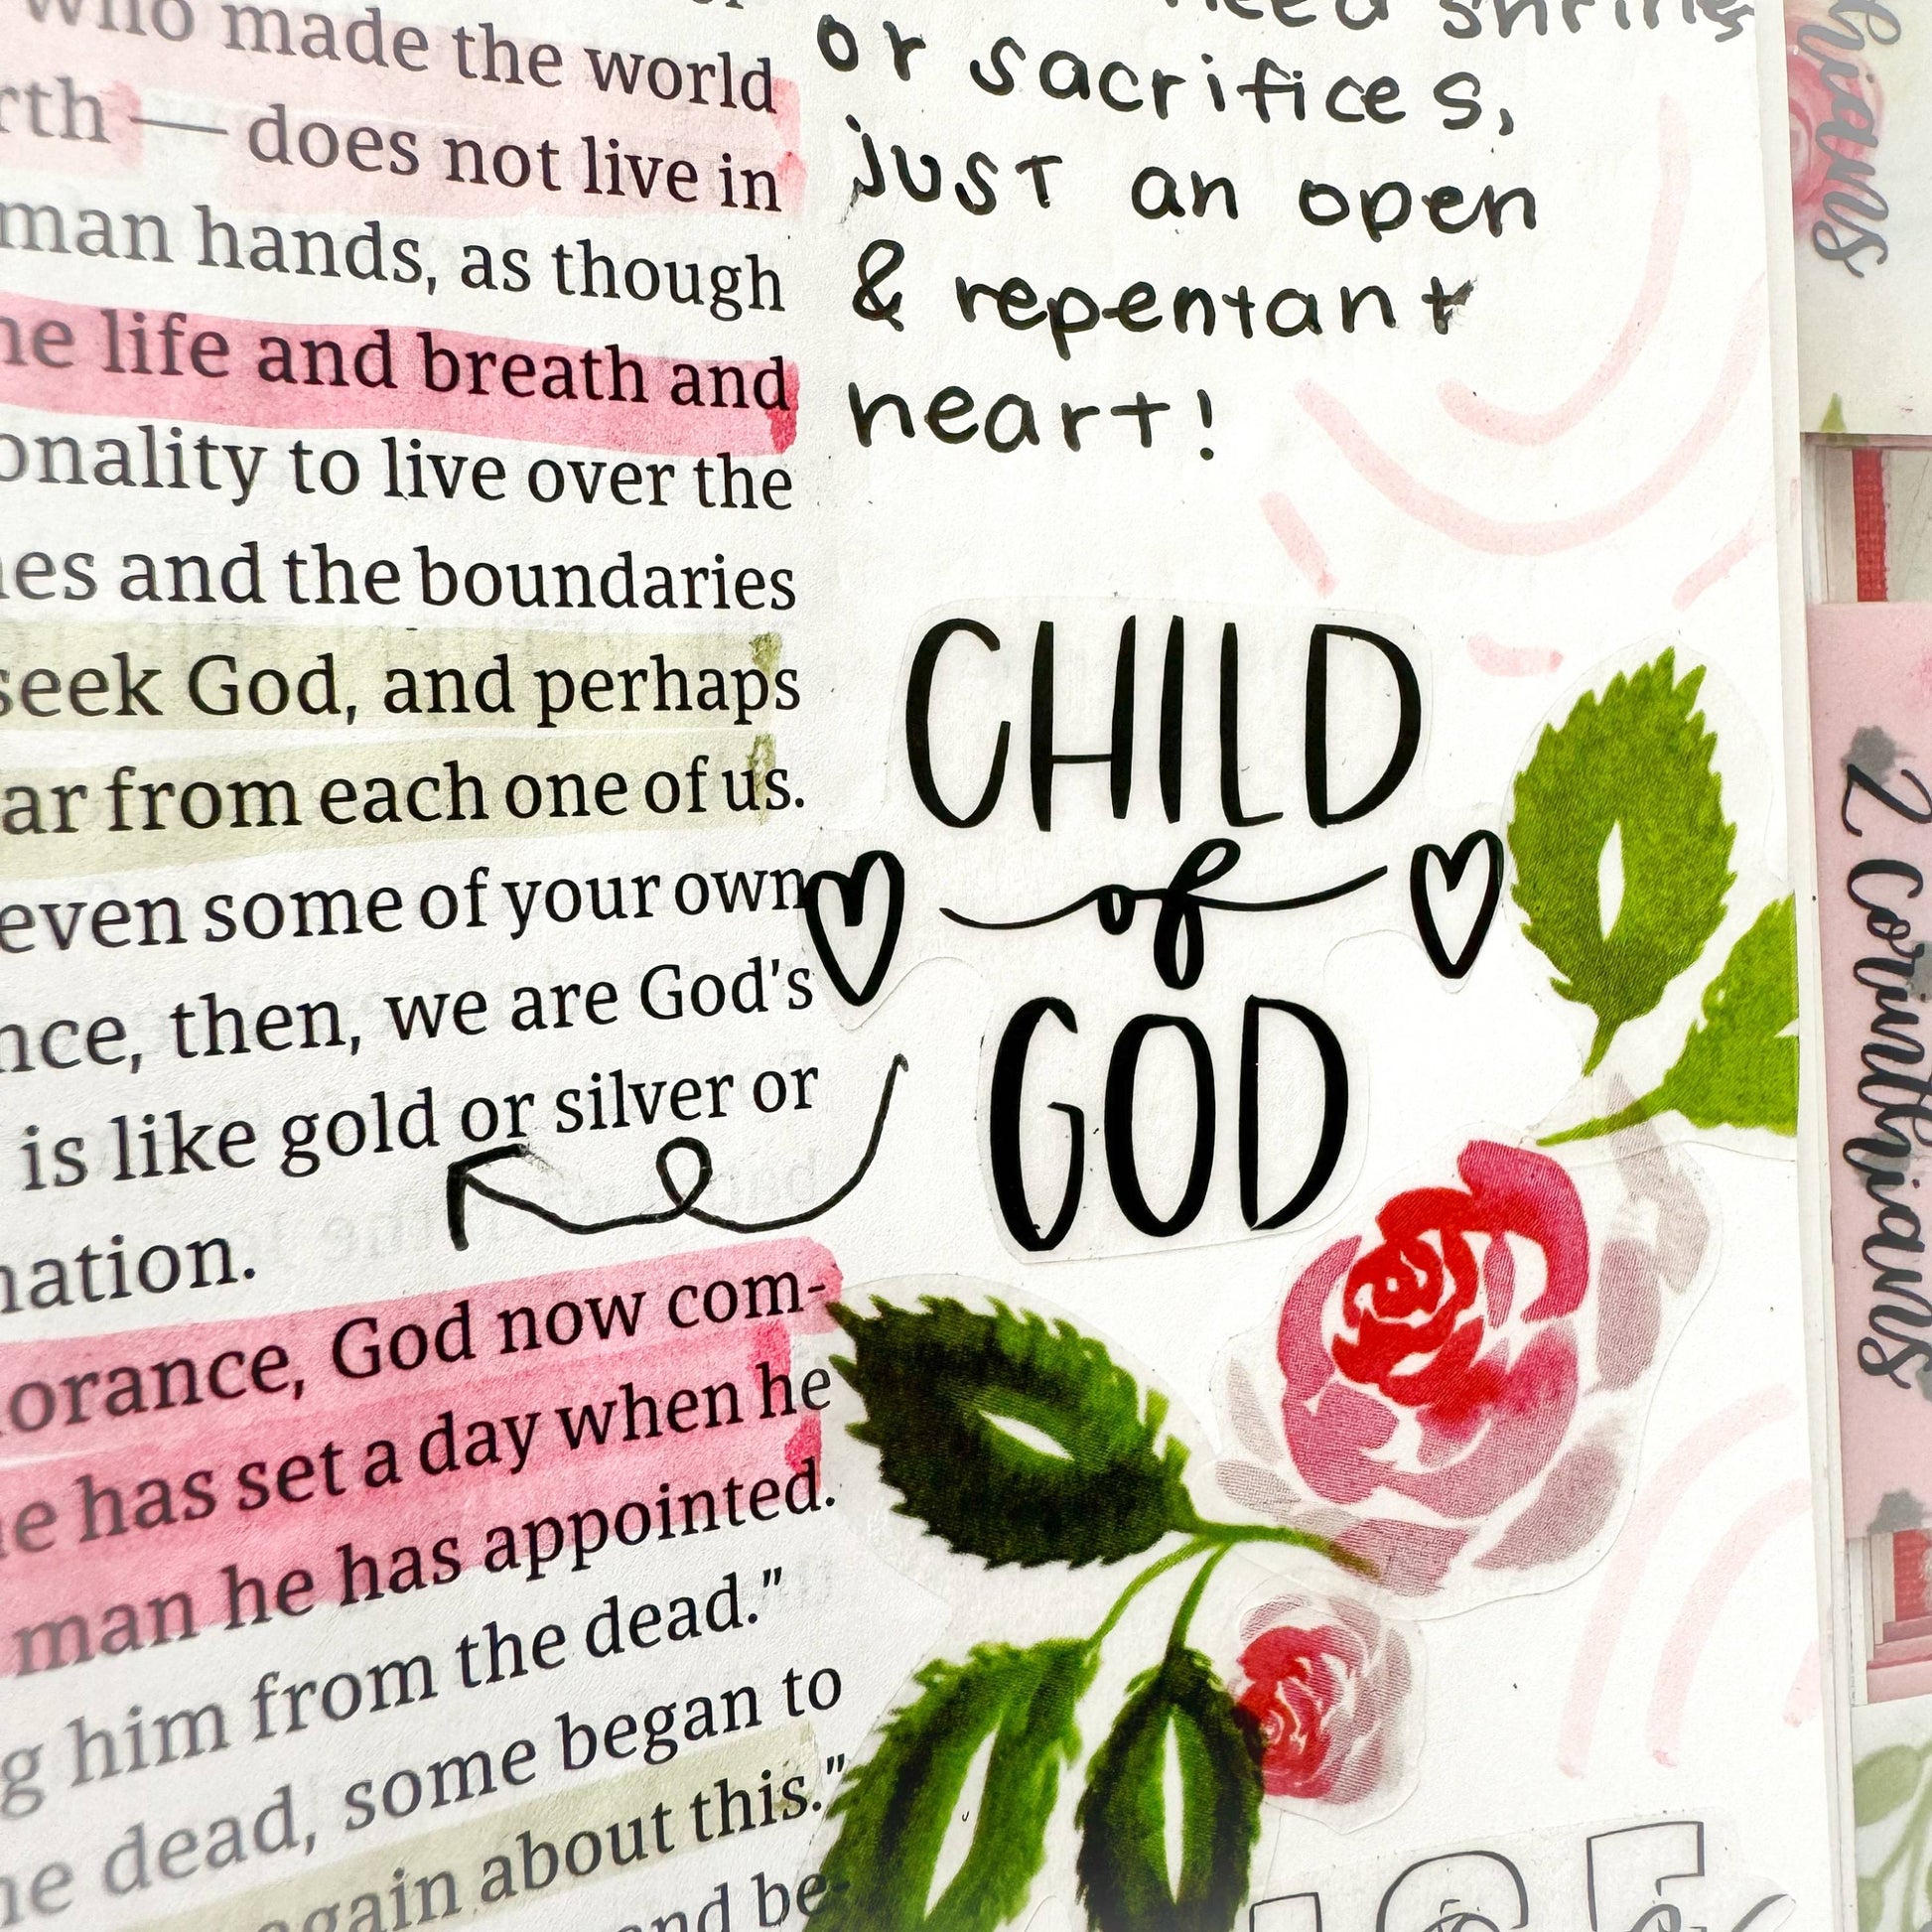 who made the world
— does not live in
hands, as though
life and breath and
to live over the
and the boundaries
seek God, and perhaps
from each one of us.
even some of your own
then, we are God's
is like gold or silver or
God now com-
has set a day when he
man he has appointed.
him from the dead."
dead, some began to
about this."
be-
need shrines
or sacrifices,
just an open
& repentant
heart!
CHILD
of
GOD
2 Corinthians